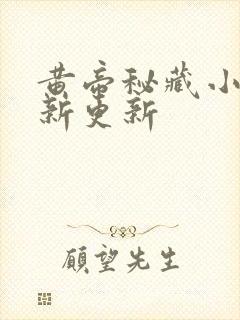 黄帝秘藏小
新更新
顾望先生